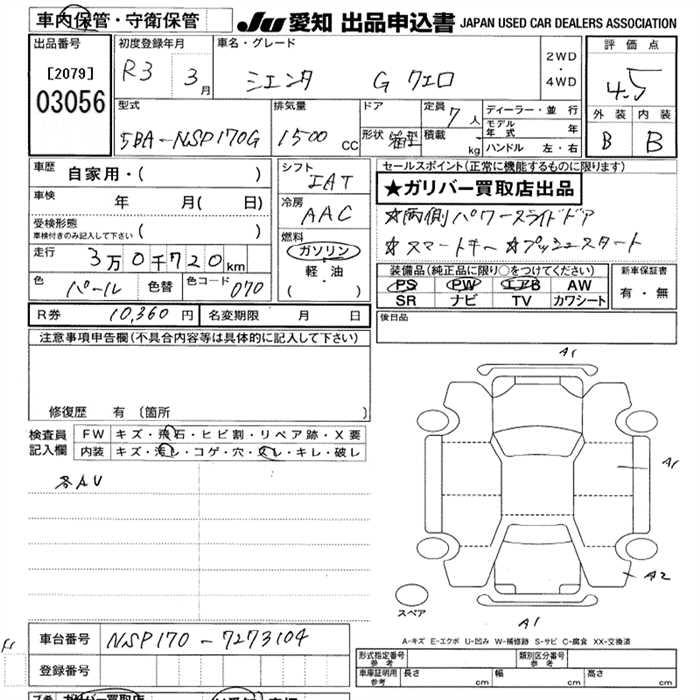 車内保管・守衛保管
JU 愛知 出品申込書 JAPAN USED CAR DEALERS ASSOCIATION
出品番号
[2079]
03056
初度登録年月
R3 3月
車名・グレード
シエンタ G クエロ
2WD
・
4WD
評価点
4.5
外装 内装
B B
型式
5BA-NSP170G
排気量
1500 CC
ドア
形状 箱型
定員 7人
積載 kg
ディーラー・並行
モデル年式 年
ハンドル 左・右
車歴 自家用・( )
車検 年 月( 日)
受検形態
車検付きのみ記入して下さい ( )
走行 3万0千720km
色 パール 色替 色コード 070
シフト
IAT
冷房
AAC
燃料
ガソリン
軽・油
( ・ )
セールスポイント(正常に機能するものに限ります)
★ガリバー買取店出品
★両側パワースライドドア
★スマートキー ★プッシュスタート
装備品(純正品に限り○をつけてください)
PS PW エアB AW
SR ナビ TV カワシート
新車保証書
有・無
R券 10,360円 名変期限 月 日
後日品
注意事項申告欄(不具合内容等は具体的に記入して下さい)
修復歴 有〔箇所 〕
検査員記入欄
FW キズ・飛石・ヒビ割・リペア跡・X要
内装 キズ・汚レ・コゲ・穴・スレ・キレ・破レ
各AU
A1
A1
A2
A1
スペア
A-キズ E-エクボ U-凹み W-補修跡 S-サビ C-腐食 XX-交換済
車台番号 NSP170-7273104
登録番号
形式指定番号 参考
類別区分番号 参考
車庫証明用 参考 長さ cm 幅 cm 高さ cm